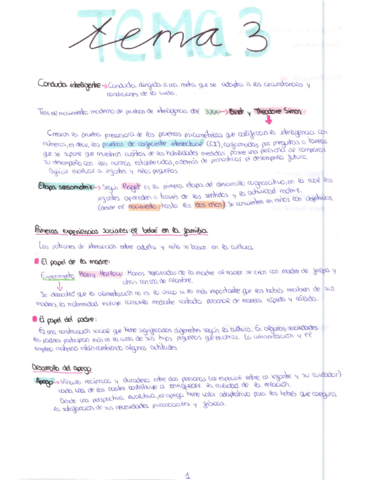 tema 3
Conducta inteligente → Conducta dirigida a una meta que se adapta a las circunstancias y
condiciones de la vida.
movimiento moderno de pruebas de inteligencia del Binet y Theodore Simon
Crearon la prueba precursora de las pruebas psicométricas que califican la inteligencia con
números, es decir, las pruebas de coeficiente intelectual (CI), conformadas por preguntas o tareas
que se supone que muestran cuántas de las habilidades medidas posee una persona al comparar
su desempeño con las normas establecidas, además de pronosticar el desempeño futuro.
evaluar a infantes y niños pequeños.
Etapa sensomotriz → Según Piaget es la primera etapa del desarrollo cognoscitivo, en la cual los
infantes aprenden a través de los sentidos y la actividad motriz.
(desde el nacimiento hasta los dos años) Se convierten en niños con objetivos.
Primeras experiencias sociales: el bebé en la familia
Los patrones de interacción entre adulto y niño se basan en la cultura.
El papel de la madre:
Experimento Harry Harlow: Monos separados de la madre al nacer se crían con madre de felpa y
otras hechas de alambre.
Se descubrió que la alimentación no es lo único ni lo más importante que los bebés reciben de sus
madres, la maternidad incluye consuelo mediante contacto personal de manera rápida y cálida.
El papel del padre:
Es una construcción social que tiene significados diferentes según la cultura. En algunas sociedades
los padres participan más en la vida de sus hijos pequeños que en otras. La urbanización y el
empleo materno están cambiando algunas actitudes.
Desarrollo del Apego
Apego → Vínculo recíproco y duradero entre dos personas (en especial entre un infante y su cuidador)
cada una de las cuales contribuye a enriquecer la calidad de la relación.
Desde una perspectiva evolutiva, el apego tiene valor adaptativo para los bebés que asegura
la satisfacción de sus necesidades psicosociales y físicas.
1